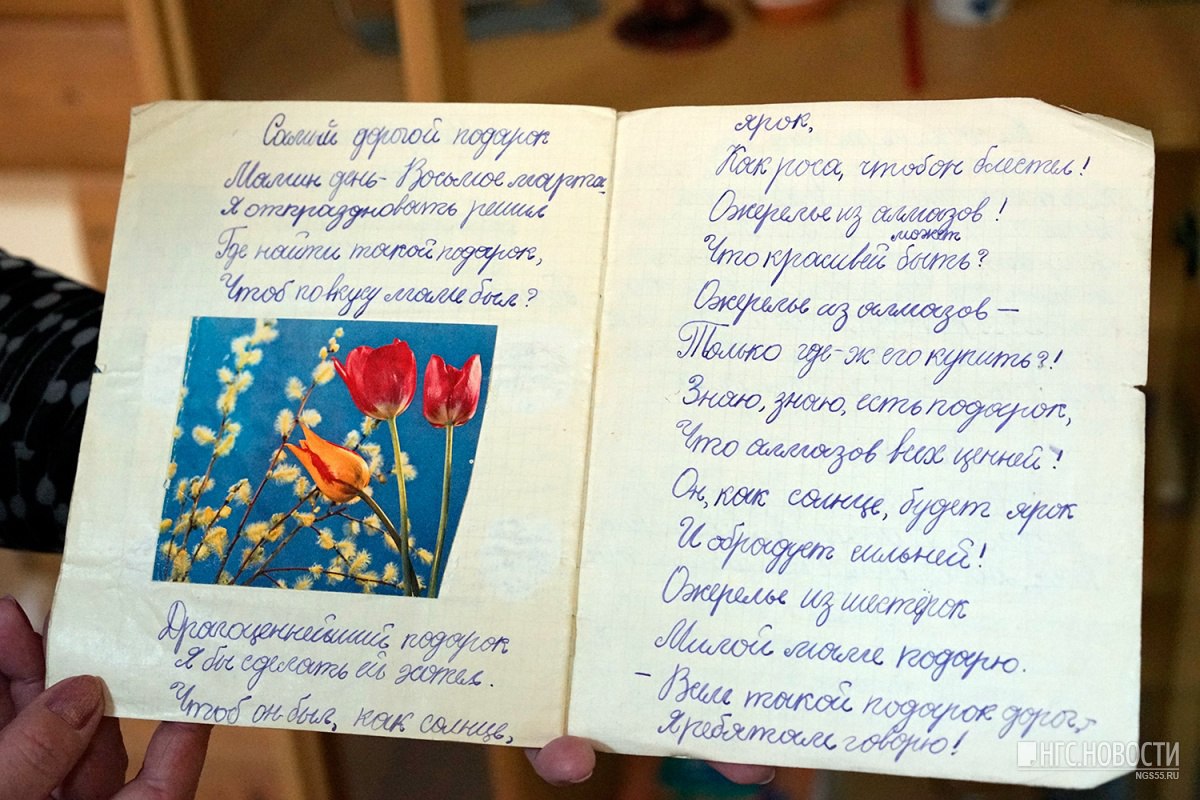 Самый дорогой подарок
Мамин день - Восьмое марта
Я отпраздновать решил
Где найти такой подарок,
Чтоб по вкусу маме был?
Драгоценнейший подарок
Я бы сделать ей хотел.
Чтоб он был, как солнце,
ярок,
Как роса, чтоб он блестел!
Ожерелье из алмазов!
Что красивей может быть?
Ожерелье из алмазов —
Только где-ж его купить?!
Знаю, знаю, есть подарок,
Что алмазов всех ценней!
Он, как солнце, будет ярок
И обрадует сильней!
Ожерелье из шестёрок
Милой маме подарю.
- Вам такой подарок дорог,
Я ребятам говорю!
НГС.НОВОСТИ
NGS55.RU